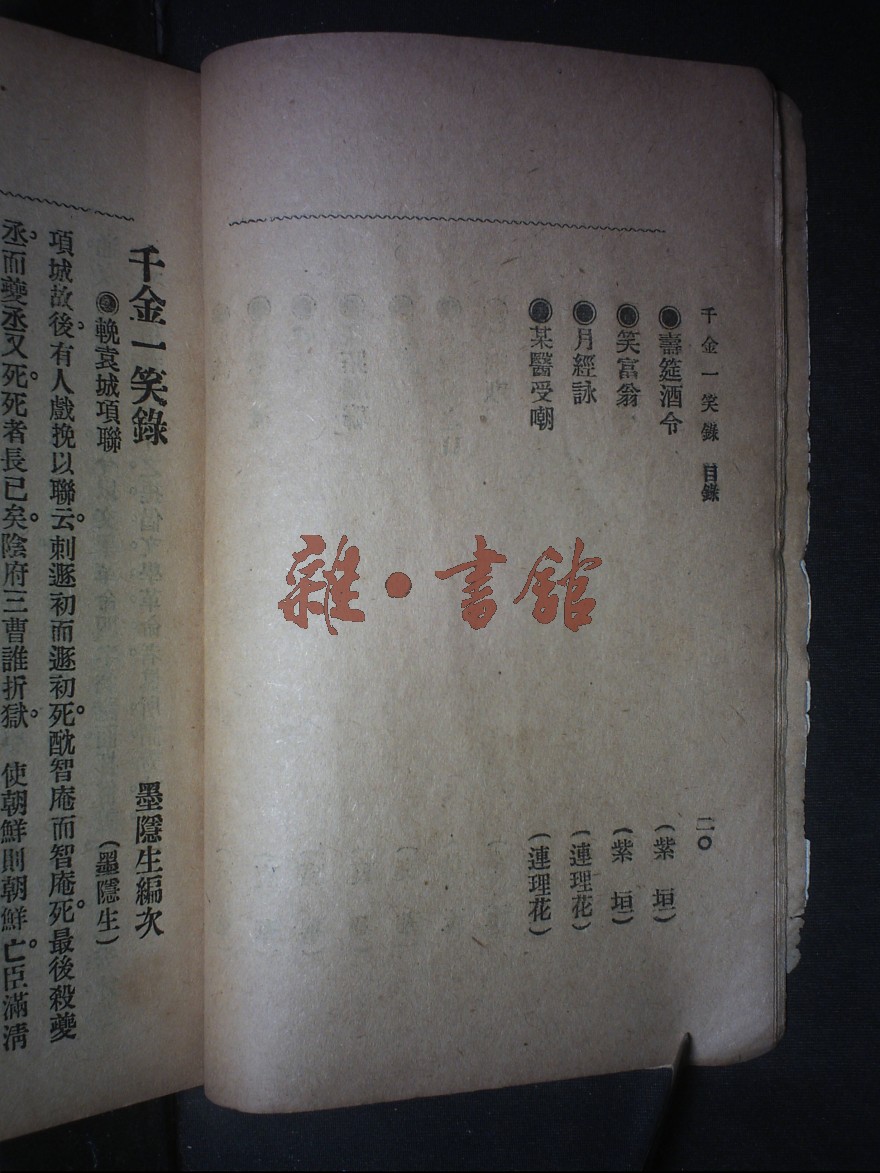 千金一笑錄 目錄 二〇
●壽筵酒令 (紫垣)
●笑富翁 (紫垣)
●月經詠 (連理花)
●某醫受嘲 (連理花)
雜·書館
千金一笑錄 墨隱生編次
●輓袁城項聯 (墨隱生)
項城故後。有人戲挽以聯云。刺遯初而遯初死。酖智庵而智庵死。最後殺夔
丞。而夔丞又死。死者長已矣。陰府三曹誰折獄。 使朝鮮則朝鮮亡。臣滿淸